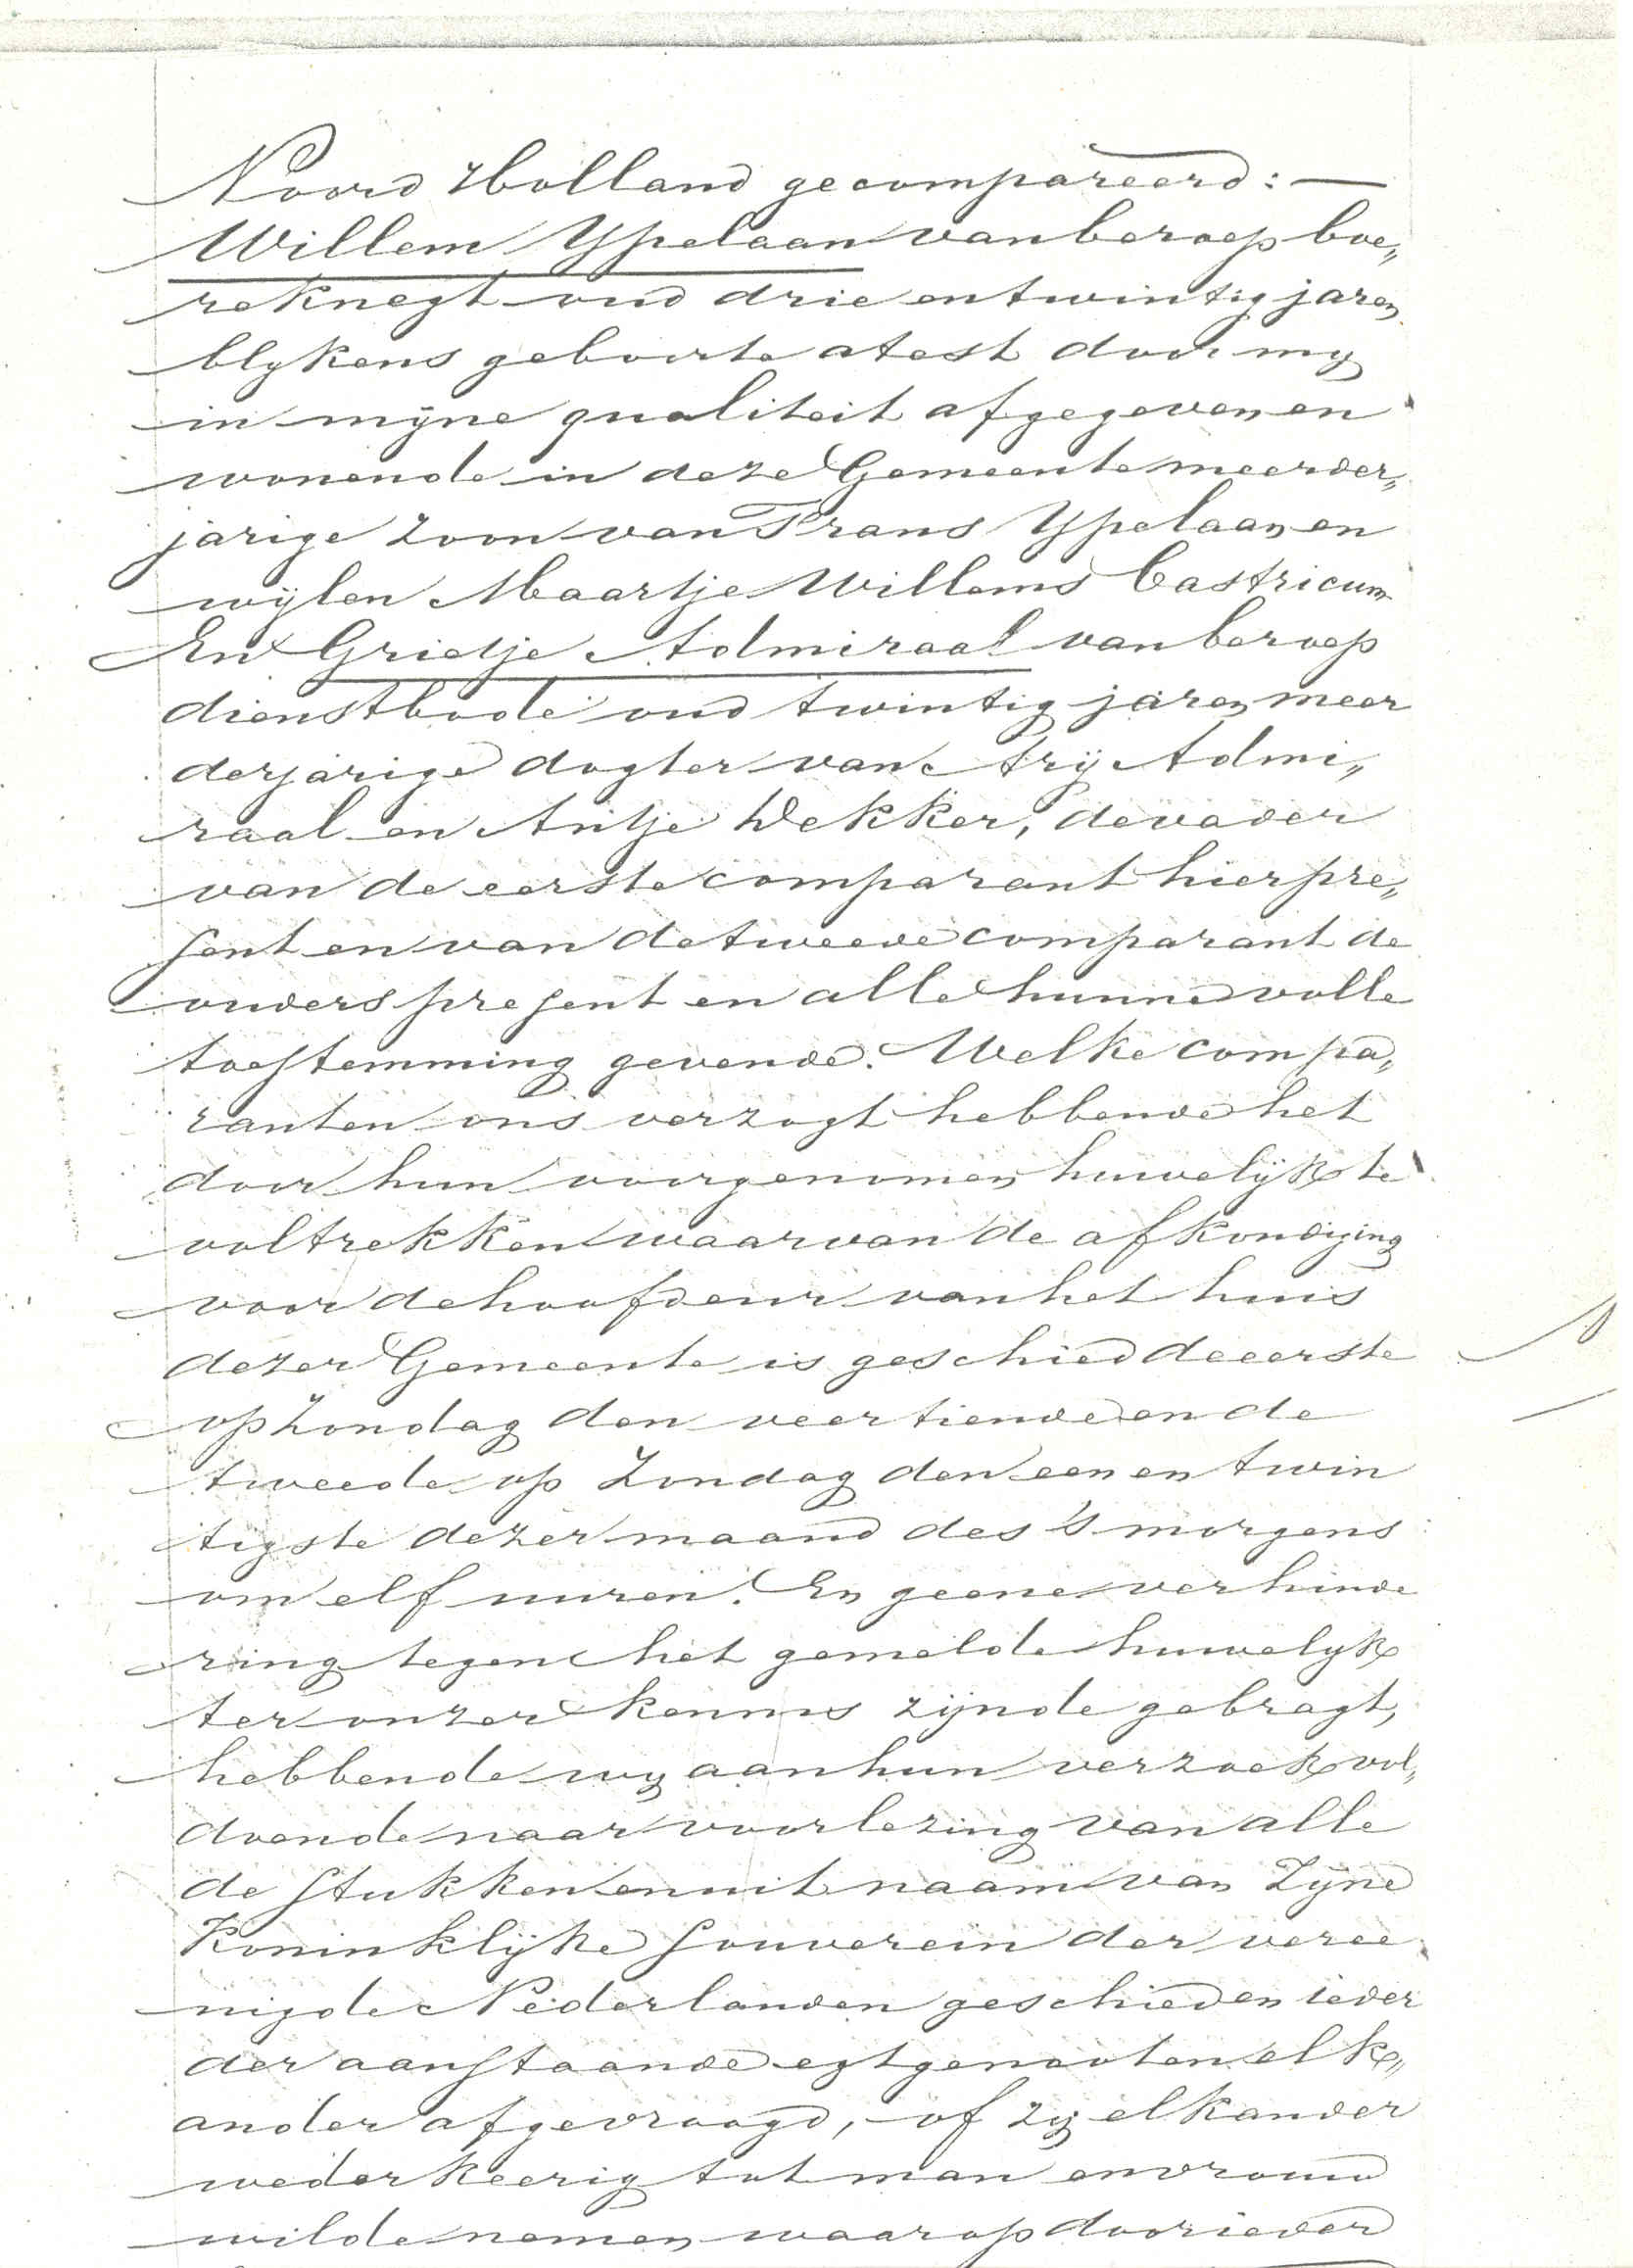 Noord Holland gecompareerd: —
Willem Ypelaan van beroep boe„
reknegt oud drie en twintig jaren
blykens geboorte atest door my
in mÿne qualiteit afgegeven en
wonende in deze Gemeente meerder„
jarige zoon van Frans Ypelaan en
wÿlen Maartje Willems Castricum
En Grietje Admiraal van beroep
dienstbode oud twintig jaren meer
derjarige dogter van Arÿ Admi„
raal en Antje Dekker, de vader
van de eerste comparant hier pre„
sent en van de tweede comparant de
ouders present en alle hunne volle
toestemming gevende. Welke compa„
ranten ons verzogt hebbende het
door hun voorgenomen huwelÿk te
voltrekken waarvan de afkondiging
voor de hoofdeur van het huis
dezer Gemeente is geschied de eerste
op Zondag den veertiende en de
tweede op Zondag den een en twin
tigste dezer maand des 's morgens
om elf uuren. En geene verhinde
ring tegen het gemelde huwelyk
ter onzer kennis zÿnde gebragt,
hebbende wy aan hun verzoek vol„
doende naar voorlezing van alle
de stukken en uit naam van Zÿne
Koninklÿke Souverein der veree
nigde Nederlanden geschieden ieder
der aanstaande egtgenooten elk„
ander afgevraagd, of zy elkander
wederkeerig tot man en vrouw
wilde nemen waarop door ieder